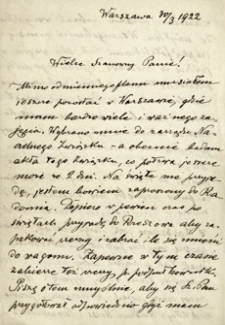 Warszawa 20/3 1922
Wielce Szanowny Panie!
Mimo odmiennego planu musiałem
jeszcze pozostać w Warszawie, gdzie
mam bardzo wiele i ważnego za-
jęcia. Wybrano mnie do zarządu Na-
Związku - a obecnie badam
akta tego Związku, co potrwa jeszcze
może 2 dni. Na święta nie przy-
jadę, jestem bowiem zaproszony do Ra-
domia. Dopiero w pewien czas po
świętach przyjadę do Rzeszowa aby za-
pakować rzeczy i zabrać ile się zmieści
do wagonu. Zapewne w tym czasie
zabierze też rzeczy p.
Piszę o tem umyślnie, aby się Sz. Pan
przygotował odpowiednio gdyż mam